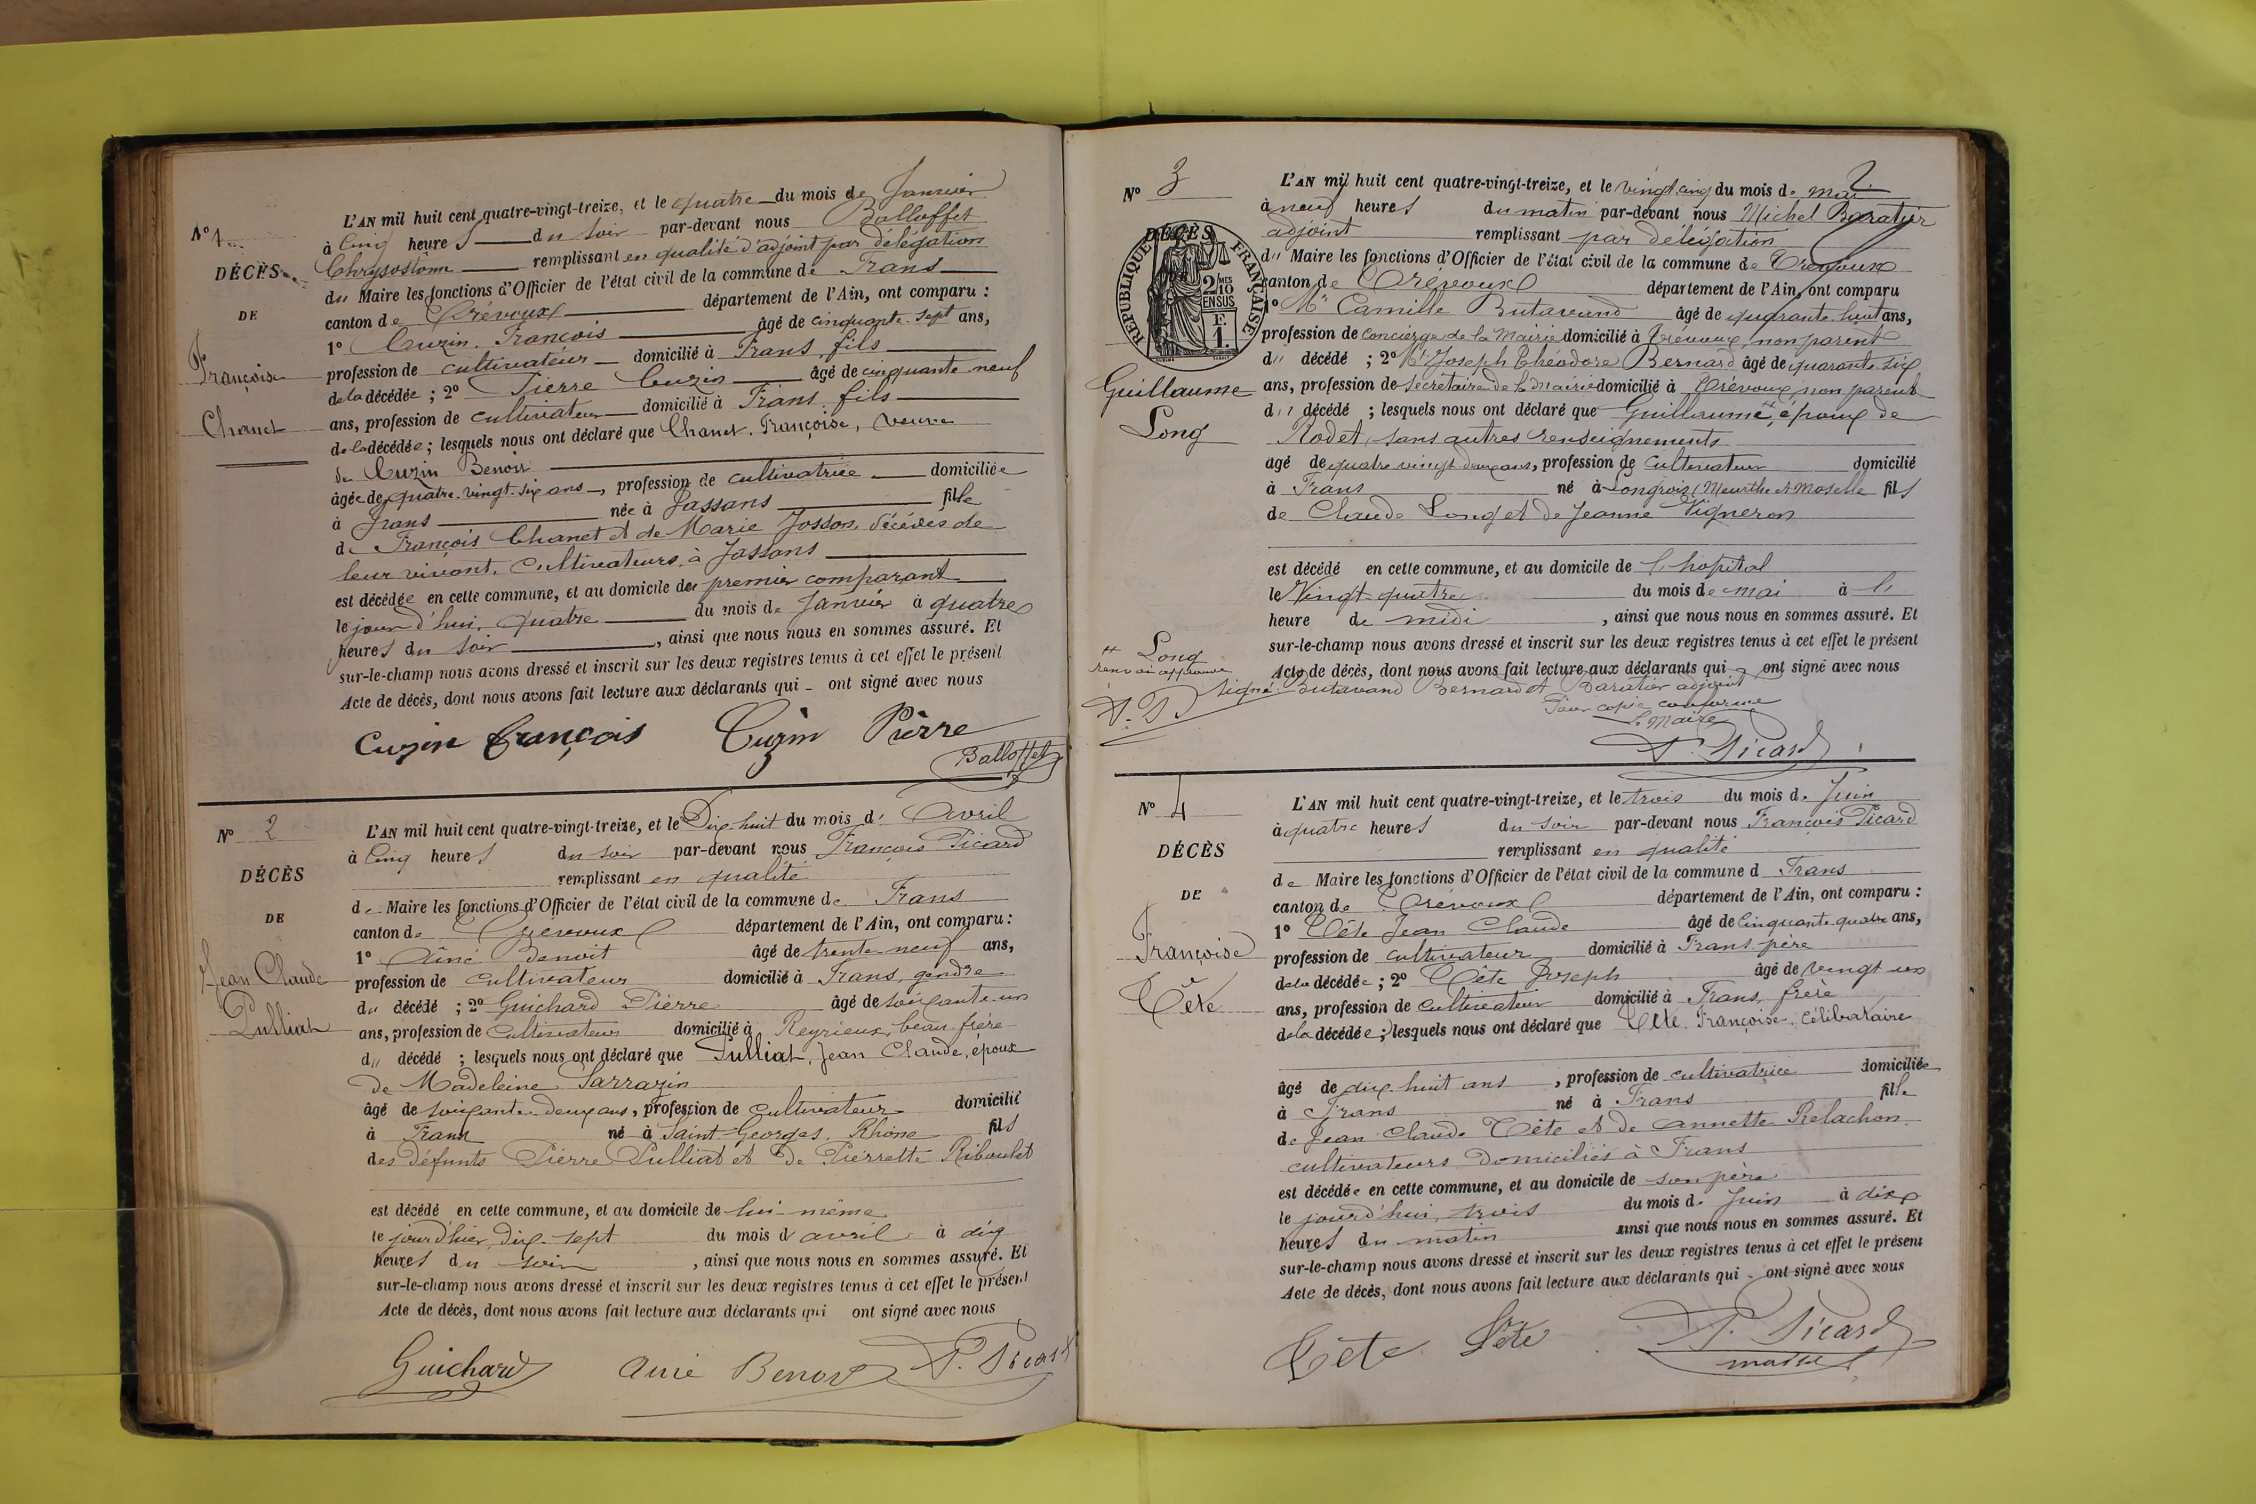 N° 1
DÉCÈS
DE
Françoise
Chanet
L'AN mil huit cent quatre-vingt-treize, et le quatre du mois de Janvier
à Cinq heures du soir par-devant nous Balloffet
Chrysostôme remplissant en qualité d'adjoint par délégation
du Maire les fonctions d'Officier de l'état civil de la commune de Frans
canton de Trévoux département de l'Ain, ont comparu :
1° Cuzin François âgé de cinquante-sept ans,
profession de cultivateur domicilié à Frans, fils
de la décédée ; 2° Pierre Cuzin âgé de cinquante neuf
ans, profession de cultivateur domicilié à Frans, fils
de la décédée ; lesquels nous ont déclaré que Chanet Françoise, veuve
de Cuzin Benoit
âgée de quatre-vingt-six ans, profession de cultivatrice domiciliée
à Frans née à Jassans fille
de François Chanet et de Marie Josson, décédés de
leur vivant, cultivateurs à Jassans
est décédée en cette commune, et au domicile de premier comparant
le jour d'hui, quatre du mois de Janvier à quatre
heures du soir, ainsi que nous nous en sommes assuré. Et
sur-le-champ nous avons dressé et inscrit sur les deux registres tenus à cet effet le présent
Acte de décès, dont nous avons fait lecture aux déclarants qui ont signé avec nous
Cuzin François Cuzin Pierre
Balloffet
N° 2
DÉCÈS
DE
Jean Claude
Pulliat
L'AN mil huit cent quatre-vingt-treize, et le Dix huit du mois d' Avril
à Cinq heures du soir par-devant nous François Picard
remplissant en qualité
de Maire les fonctions d'Officier de l'état civil de la commune de Frans
canton de Trévoux département de l'Ain, ont comparu :
1° Aîné Benoit âgé de trente neuf ans,
profession de cultivateur domicilié à Frans, gendre
du décédé ; 2° Guichard Pierre âgé de soixante-un
ans, profession de cultivateur domicilié à Reyrieux, beau frère
du décédé ; lesquels nous ont déclaré que Pulliat, Jean Claude, époux
de Madeleine Sarrazin
âgé de soixante-deux ans, profession de cultivateur domicilié
à Frans né à Saint-Georges, Rhône fils
des défunts Pierre Pulliat et de Pierrette Riboulet
est décédé en cette commune, et au domicile de lui-même
le jour d'hier, dix-sept du mois d'avril à dix
heures du soir, ainsi que nous nous en sommes assuré. Et
sur-le-champ nous avons dressé et inscrit sur les deux registres tenus à cet effet le présent
Acte de décès, dont nous avons fait lecture aux déclarants qui ont signé avec nous
Guichard Ainé Benoit P. Picard
2
N° 3
DÉCÈS
RÉPUBLIQUE FRANÇAISE
2/10 MES
EN SUS
F.
1.
Guillaume
Long
L'AN mil huit cent quatre-vingt-treize, et le vingt cinq du mois de mai
à neuf heures du matin par-devant nous Michel Baratier
adjoint remplissant par délégation
du Maire les fonctions d'Officier de l'état civil de la commune de Trévoux
canton de Trévoux département de l'Ain, ont comparu
1° Mr Camille Butavand âgé de quarante-huit ans,
profession de concierge de la Mairie domicilié à Trévoux, non parent
du décédé ; 2° Mr Joseph Théodore Bernard âgé de quarante-six
ans, profession de secrétaire de la mairie domicilié à Trévoux, non parent
du décédé ; lesquels nous ont déclaré que Guillaume ++, époux de
Rodet, sans autres renseignements
agé de quatre vingt deux ans, profession de cultivateur domicilié
à Frans né à Longwy (Meurthe et Moselle fils
de Claude Long et de Jeanne Vigneron
est décédé en cette commune, et au domicile de l'hopital
le Vingt-quatre du mois de mai à l'
heure de midi, ainsi que nous nous en sommes assuré. Et
sur-le-champ nous avons dressé et inscrit sur les deux registres tenus à cet effet le présent
Acte de décès, dont nous avons fait lecture aux déclarants qui ont signé avec nous
++ Long
renvoi approuvé
Signé: Butavand Bernard et Baratier adjoint
Pour copie conforme
Le Maire
P. Picard
N° 4
DÉCÈS
DE
Françoise
Tête
L'AN mil huit cent quatre-vingt-treize, et le trois du mois de Juin
à quatre heures du soir par-devant nous François Picard
remplissant en qualité
de Maire les fonctions d'Officier de l'état civil de la commune d Frans
canton de Trévoux département de l'Ain, ont comparu :
1° Tête Jean Claude âgé de Cinquante quatre ans,
profession de cultivateur domicilié à Frans, père
de la décédée ; 2° Tête Joseph âgé de vingt un
ans, profession de cultivateur domicilié à Frans, frère
de la décédée ; lesquels nous ont déclaré que Tête Françoise, célibataire
âgé de dix-huit ans, profession de cultivatrice domiciliée
à Frans né à Frans fille
de Jean Claude Tête et de Annette Relachon
cultivateurs domiciliés à Frans
est décédée en cette commune, et au domicile de son père
le jour d'hui, trois du mois de Juin à dix
heures du matin ainsi que nous nous en sommes assuré. Et
sur-le-champ nous avons dressé et inscrit sur les deux registres tenus à cet effet le présent
Acte de décès, dont nous avons fait lecture aux déclarants qui ont signé avec nous
Tête Tête P. Picard
maire